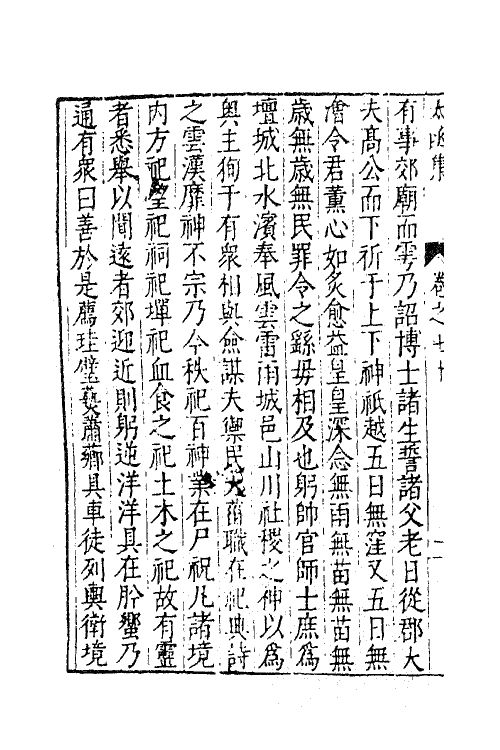 太函集 卷之七十
有事郊廟而雩乃詔博士諸生誓諸父老日從郡大
夫高公而下祈于上下神祇越五日無窪又五日無
澮令君薰心如炙愈益皇皇深念無雨無苗無苗無
歳無歳無民罪令之繇毋相及也躬帥官師士庶爲
壇城北水濱奉風雲雷雨城邑山川社稷之神以爲
輿主狥于有衆相與僉謀夫禦民大菑職在祀典詩
之雲漢靡神不宗乃今秩祀百神業在尸祝凡諸境
内方祀望祀祠祀墠祀血食之祀土木之祀故有靈
者悉舉以聞遠者郊迎近則躬逆洋洋具在肸蠁乃
通有衆曰善於是薦珪璧爇蕭薌具車徒列輿衛境